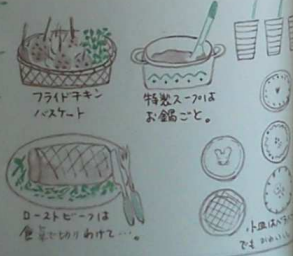 フライドチキン
バスケット
特製スープは
お鍋ごと。
ローストビーフは
食卓で切りわけて…。
小皿はバラバラ
でも